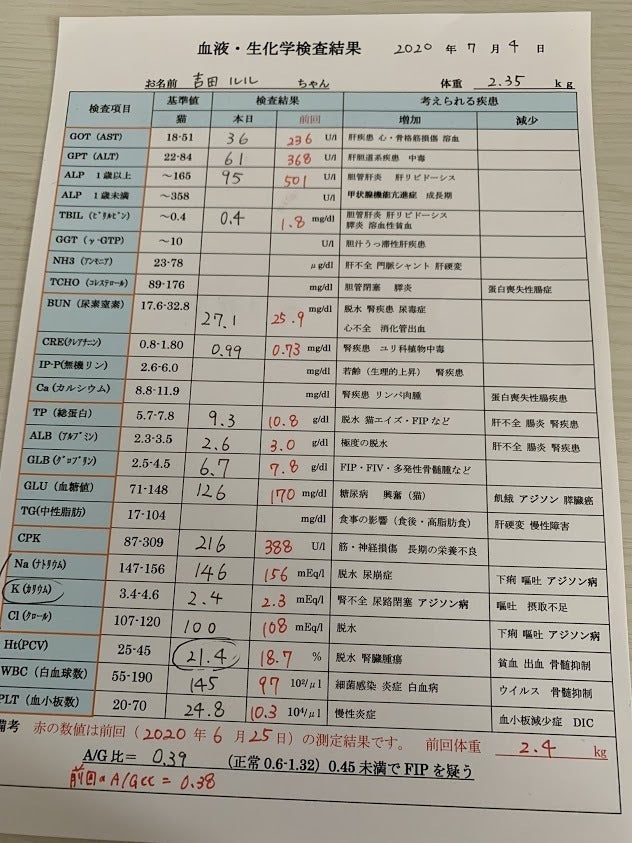 血液・生化学検査結果 2020 年 7 月 4 日
お名前 吉田 ルル ちゃん 体重 2.35 kg
検査項目 基準値 検査結果 考えられる疾患
猫 本日 前回 増加 減少
GOT (AST) 18-51 36 236 U/l 肝疾患 心・骨格筋損傷 溶血
GPT (ALT) 22-84 61 368 U/l 肝胆道系疾患 中毒
ALP 1歳以上 ~165 95 501 U/l 胆管肝炎 肝リピドーシス
ALP 1歳未満 ~358 U/l 甲状腺機能亢進症 成長期
TBIL (ビリルビン) ~0.4 0.4 1.8 mg/dl 胆管肝炎 肝リピドーシス
膵炎 溶血性貧血
GGT (γ-GTP) ~10 U/l 胆汁うっ滞性肝疾患
NH3 (アンモニア) 23-78 μg/dl 肝不全 門脈シャント 肝硬変
TCHO (コレステロール) 89-176 mg/dl 胆管閉塞 膵炎 蛋白喪失性腸症
BUN (尿素窒素) 17.6-32.8 27.1 25.9 mg/dl 脱水 腎疾患 尿毒症
心不全 消化管出血
CRE(クレアチニン) 0.8-1.80 0.99 0.73 mg/dl 腎疾患 ユリ科植物中毒
IP-P(無機リン) 2.6-6.0 mg/dl 若齢(生理的上昇) 腎疾患
Ca (カルシウム) 8.8-11.9 mg/dl 腎疾患 リンパ肉腫 蛋白喪失性腸疾患
TP (総蛋白) 5.7-7.8 9.3 10.8 g/dl 脱水 猫エイズ・FIPなど 肝不全 腸炎 腎疾患
ALB (アルブミン) 2.3-3.5 2.6 3.0 g/dl 極度の脱水 肝不全 腸炎 腎疾患
GLB (グロブリン) 2.5-4.5 6.7 7.8 g/dl FIP・FIV・多発性骨髄腫など
GLU (血糖値) 71-148 126 170 mg/dl 糖尿病 興奮(猫) 飢餓 アジソン 膵臓癌
TG(中性脂肪) 17-104 mg/dl 食事の影響(食後・高脂肪食) 肝硬変 慢性障害
CPK 87-309 216 388 U/l 筋・神経損傷 長期の栄養不良
Na (ナトリウム) 147-156 146 156 mEq/l 脱水 尿崩症 下痢 嘔吐 アジソン病
K (カリウム) 3.4-4.6 2.4 2.3 mEq/l 腎不全 尿路閉塞 アジソン病 嘔吐 摂取不足
Cl (クロール) 107-120 100 108 mEq/l 脱水 下痢 嘔吐 アジソン病
Ht(PCV) 25-45 21.4 18.7 % 脱水 腎臓腫瘍 貧血 出血 骨髄抑制
WBC (白血球数) 55-190 145 97 10²/μl 細菌感染 炎症 白血病 ウイルス 骨髄抑制
PLT (血小板数) 20-70 24.8 10.3 10⁴/μl 慢性炎症 血小板減少症 DIC
備考 赤の数値は前回(2020 年 6 月 25 日)の測定結果です。 前回体重 2.4 kg
A/G比= 0.39 (正常 0.6-1.32) 0.45未満でFIPを疑う
前回のA/G比 = 0.38